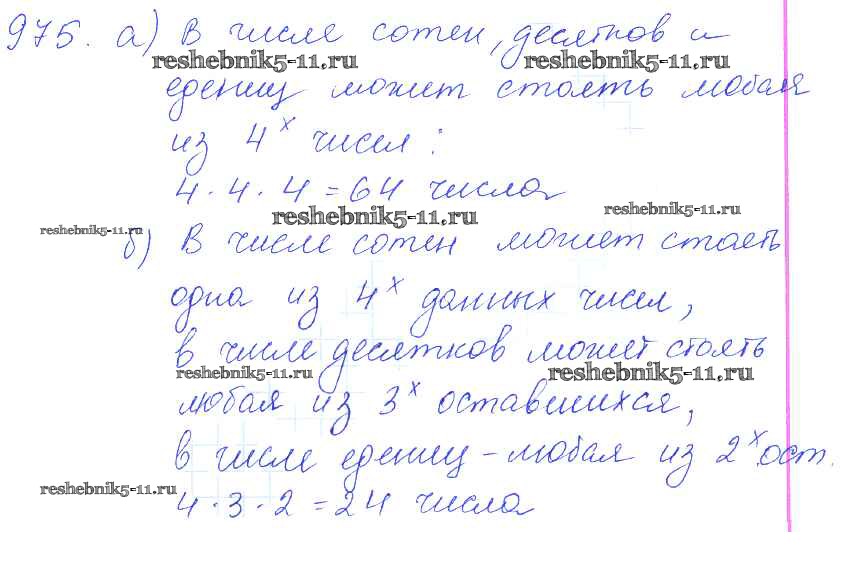 975. а) В числе сотен, десятков и
reshebnik5-11.ru reshebnik5-11.ru
едениц может стоять любая
из 4х чисел:
4 · 4 · 4 = 64 числа
reshebnik5-11.ru reshebnik5-11.ru
reshebnik5-11.ru
б) В числе сотен может стоять
одна из 4х данных чисел,
в числе десятков может стоять
reshebnik5-11.ru reshebnik5-11.ru
любая из 3х оставшихся,
в числе едениц – любая из 2х ост.
reshebnik5-11.ru
4 · 3 · 2 = 24 числа